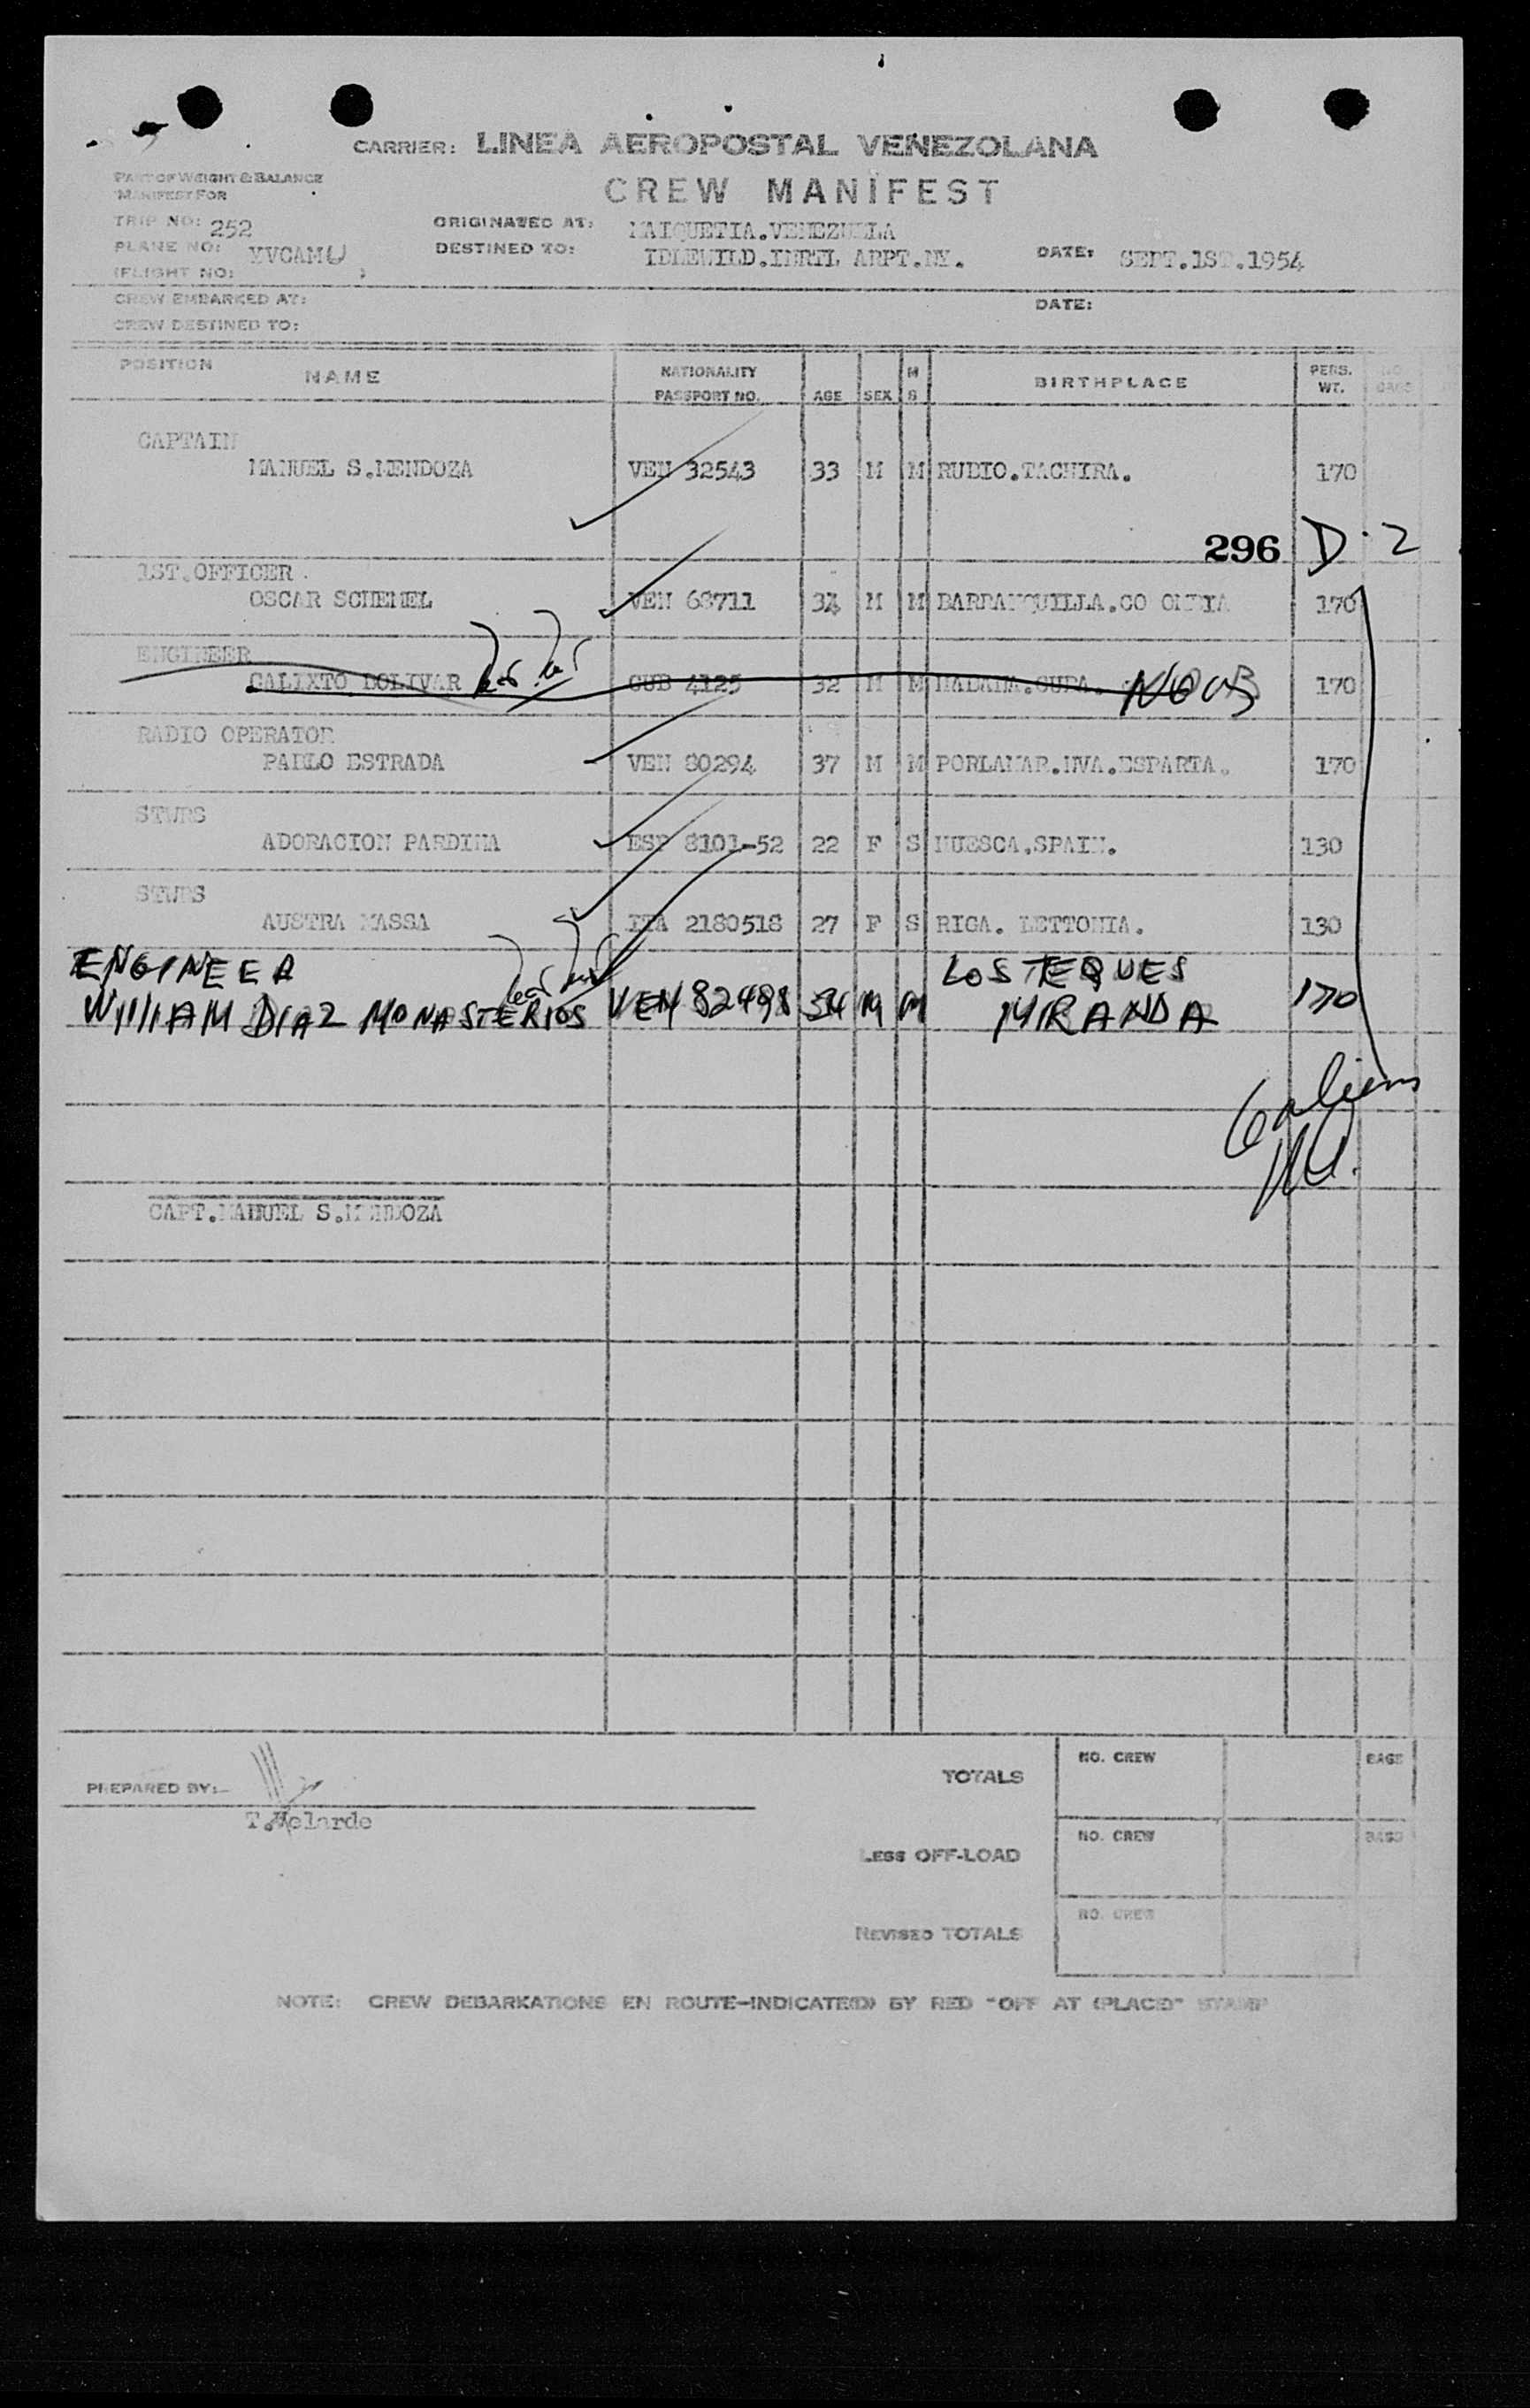 CARRIER: LINEA AEROPOSTAL VENEZOLANA
PART OF WEIGHT & BALANCE
MANIFEST FOR
CREW MANIFEST
TRIP NO: 252 ORIGINATED AT: MAIQUETIA.VENEZUELA
PLANE NO: YVCAMU DESTINED TO: IDLEWILD.INRTL ARPT.NY. DATE: SEPT.1ST.1954
(FLIGHT NO: )
CREW EMBARKED AT: DATE:
CREW DESTINED TO:
POSITION NAME NATIONALITY PASSPORT NO. AGE SEX M S BIRTHPLACE PERS. WT. NO.
CAPTAIN
MANUEL S.MENDOZA VEN 32543 33 M M RUBIO.TACHIRA. 170
296 D-2
1ST.OFFICER
OSCAR SCHEMEL VEN 68711 34 M M BARRANQUILLA.CO OMBIA 170
ENGINEER
CALIXTO BOLIVAR CUB 4125 32 M M HABANA.CUBA. NOOB 170
RADIO OPERATOR
PABLO ESTRADA VEN 80294 37 M M PORLAMAR.NVA.ESPARTA. 170
STWDS
ADORACION PARDINA ESP 8101-52 22 F S HUESCA.SPAIN. 130
STWDS
AUSTRA MASSA ITA 2180518 27 F S RIGA. LETTONIA. 130
ENGINEER LOS TEQUES
WIlliAM DIAZ MONASTERIOS VEN 82498 34 M M MIRANDA 170
6 aliens
CAPT.MANUEL S.MENDOZA
PREPARED BY:
T.Velarde
TOTALS NO. CREW BAGS
LESS OFF-LOAD NO. CREW BAGS
REVISED TOTALS NO. CREW
NOTE: CREW DEBARKATIONS EN ROUTE-INDICATE(D) BY RED "OFF AT (PLACE)" STAMP